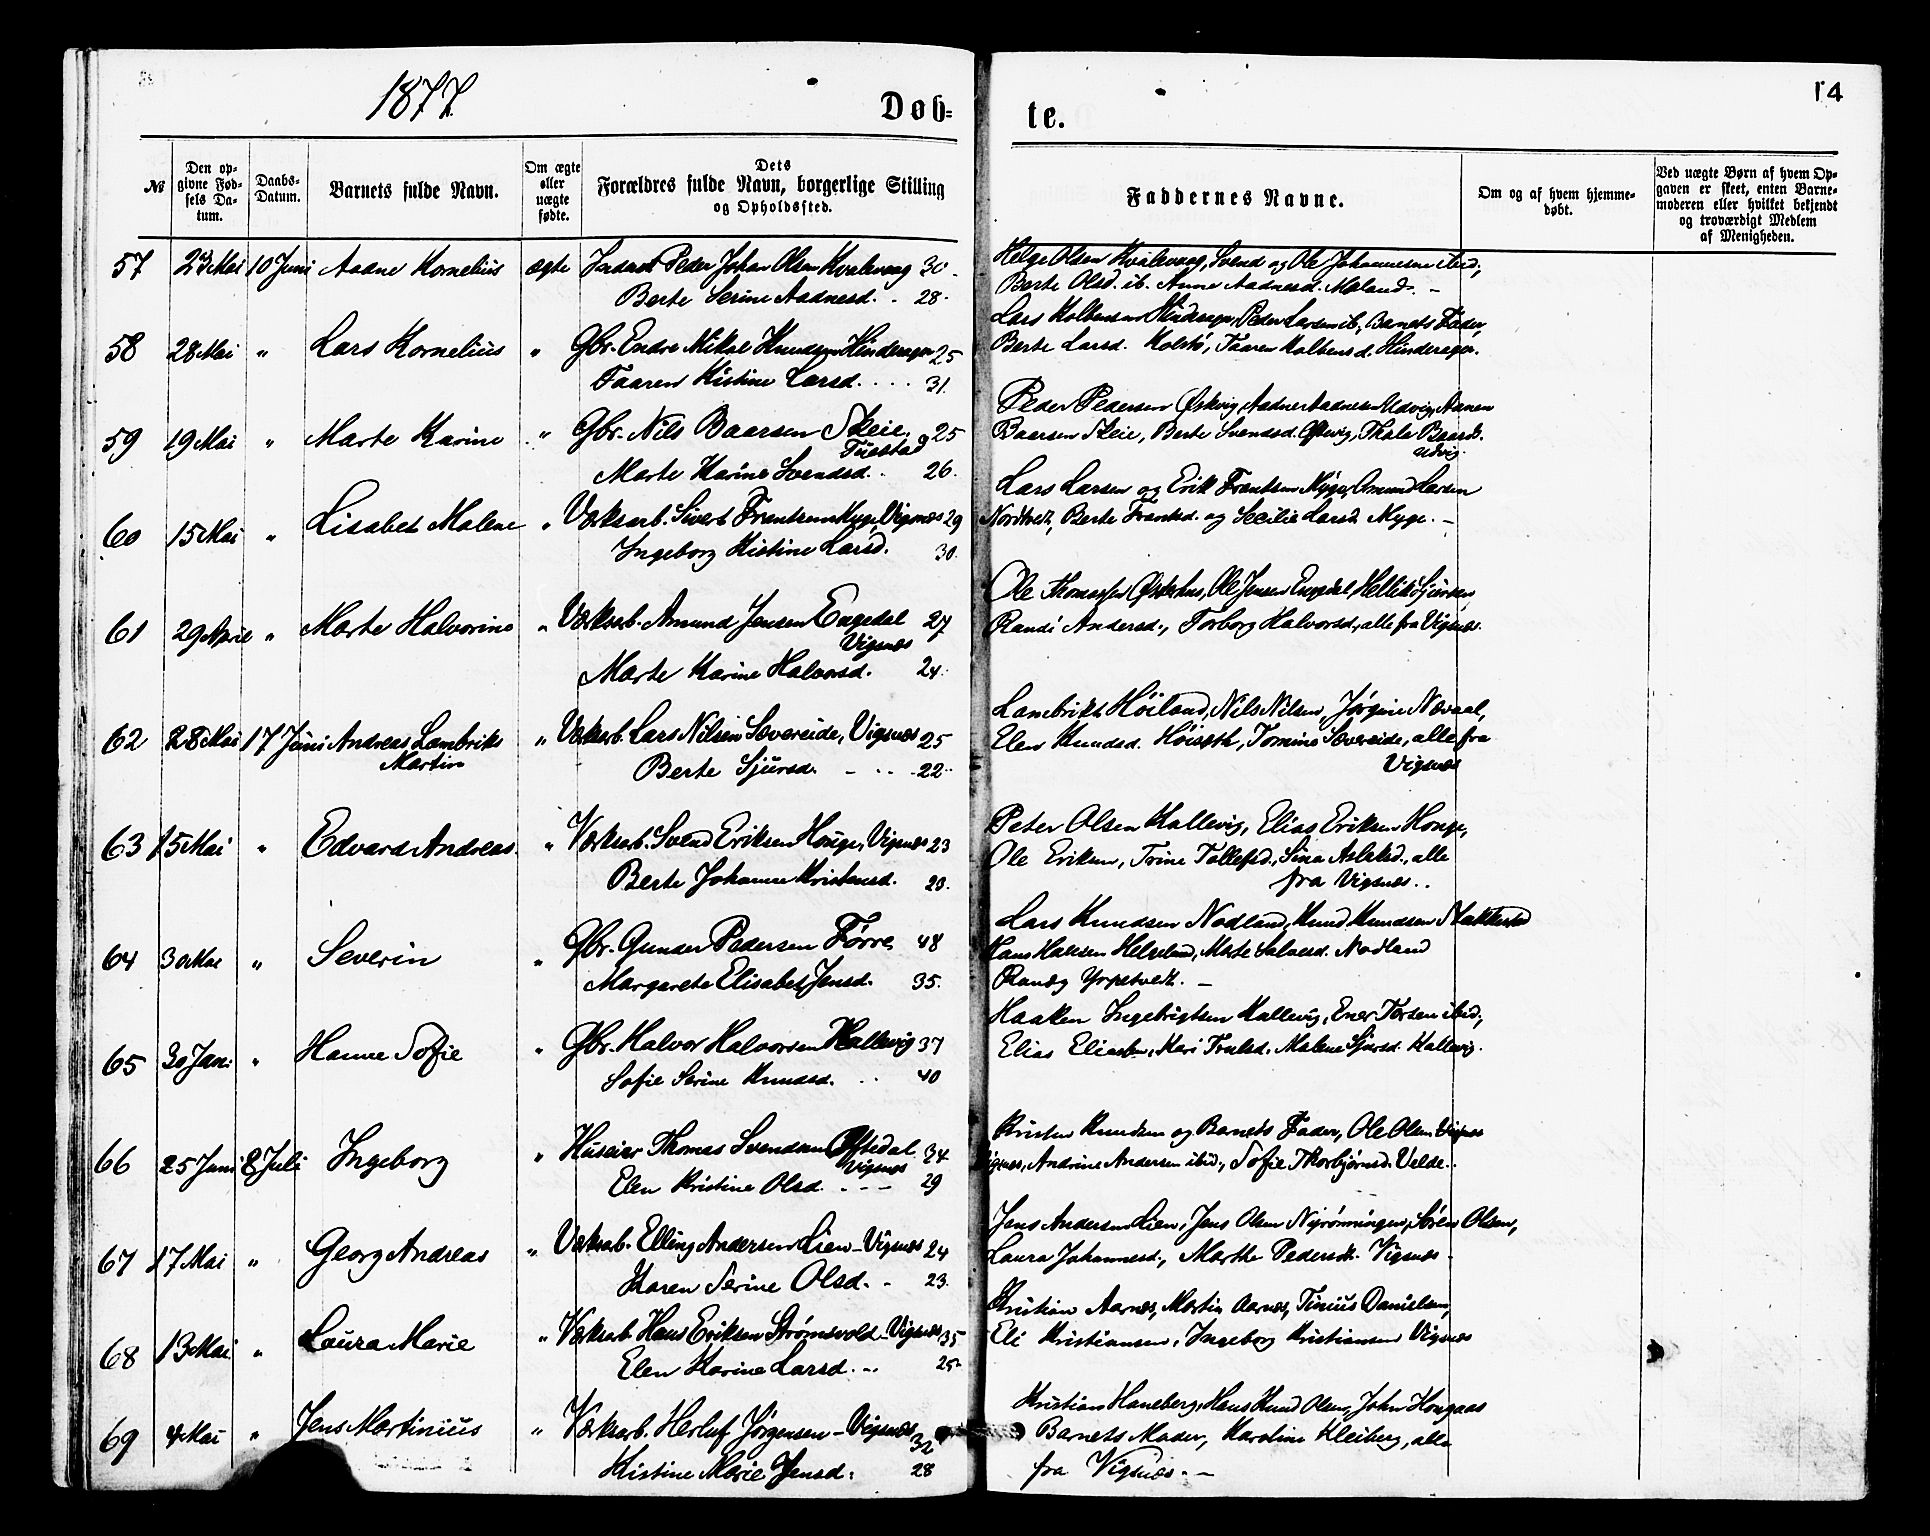 1877.
Døb=
te.
14
№
Den op-
givne Fød-
sels Da-
tum.
Daabs-
Datum.
Barnets fulde Navn.
Om ægte
eller
uægte
fødte.
Dets
Forældres fulde Navn, borgerlige Stilling
og Opholdssted.
Faddernes Navne.
Om og af hvem hjemme-
døbt.
Ved uægte Børn af hvem Op-
gaven er skeet, enten Barne-
moderen eller hvilket bekjendt
og troværdigt Medlem
af Menigheden.
57 23 Mai 10 Juni Aadne Kornelius ægte Peder Johan Olsen Kvalevaag 30
Berte Serine Aadnesd. 28
Helge Olsen Kvalevaag, Svend og Ole Johannesen ibid,
Berte Olsd. ib. Anne Aadnesd. Mæland. –
58 28 Mai " Lars Kornelius " Gbr. Endre Mikal Knudsen Hinderager 25
Taaren Kistine Larsd. 31.
Lars Kolbensen Hinderager, Peder Larsen ib, Barnets Fader,
Berte Larsd. Kolstø, Taaren Kolbensd. Hinderager.
59 19 Mai " Marte Karine " Gbr. Nils Baarsen Skeie, 25
Tuestad
Marte Karine Svendsd. 26.
Peder Pedersen Østvig, Aadne Aadnesen Udvig,
Baarsen Skeie, Berte Svendsd. Østvig, Thala Baarsd.
Udvig.
60 15 Mai " Lisabet Malene " Værksarb. Sivert Frantsen Myge, Vigsnæs 29
Ingeborg Kistine Larsd. 30.
Lars Larsen og Erik Frantsen Myge, Amund Larsen
Nordtvedt, Berte Frantsd. og Secilie Larsd. Myge. –
61 29 April " Marte Halvorine " Værksarb. Amund Jensen Engedal 27
Vigsnæs
Marte Karine Halvorsd. 24.
Ole Thomassen Østerhus, Ole Jensen Engedal, Hellik Gjursen,
Randi Andersd., Torborg Halvorsd., alle fra Vigsnæs.
62 28 Mai 17 Juni Andreas Lambrikt " Værksarb. Lars Nilsen Sævereide, Vigsnæs 25
Martin
Berte Sjursd. 22
Lambrikt Høiland, Nils Nilsen, Jørgine
Elen Knudsd. Høiseth, Tomine Sævereide, alle fra
Vigsnæs
63 15 Mai " Edvard Andreas " Værksarb. Svend Eriksen Houge, Vigsnæs 23
Berte Johanne Kristensd. 20.
Peter Olsen Kallevig, Elias Eriksen Houge,
Ole Eriksen, Trine Tollefsd., Sina Aslaksd., alle
fra Vigsnæs..
64 30 Mai " Severin " Gbr. Gunder Pedersen Førre 48
Margarete Elisabet Jensd. 35.
Lars Knudsen Nodland, Knud Knudsen Stakkested
Hans Hansen Helgeland, Marte Salvesd. Nodland
Randg Yrpstvedt. –
65 30 Jan. " Hanne Sofie " Gbr. Halvor Halvorsen Kallevig 37
Sofie Serine Knudsd. 40
Haaken Ingebrigtsen Kallevig, Ener Torsen ibid,
Elias Eliassen, Kari Trulsd. Malene Sjursd. Kallevig.
66 25 Juni 8 Juli Ingeborg " Huseier Thomas Svendsen Oftedal 34
Vigsnæs
Elen Kristine Olsd. 29
Kristen Knudsen og Barnets Fader, Ole Olsen
Vigsnæs, Andrine Andersen ibid., Sofie Thorbjørnsd. Velde.
67 17 Mai " Georg Andreas " Værksarb. Elling Andersen Lien – Vigsnæs 24
Karen Serine Olsd. 23.
Jens Andersen Lien, Jens Olsen Nyrønningen, Søren Olsen,
Laura Johannesd., Marthe Pedersdt. Vigsnæs
68 13 Mai " Laura Marie " Værksarb. Hans Eriksen Strømsvold – Vigsnæs 35
Elen Karine Larsd. 25
Kristian Aarnes, Martin Aarnes, Tinius Danielsen,
Eli Kristiansen, Ingeborg Kristiansen Vigsnæs
69 4 Mai " Jens Martinius " Værksarb. Herluf Jørgensen – Vigsnæs 32
Kistine Marie Jensd. 28
Kristian Haneberg, Hans Knud Olsen, John Hougaas
Barnets Moder, Karoline Kleiberg, alle
fra Vigsnæs. –